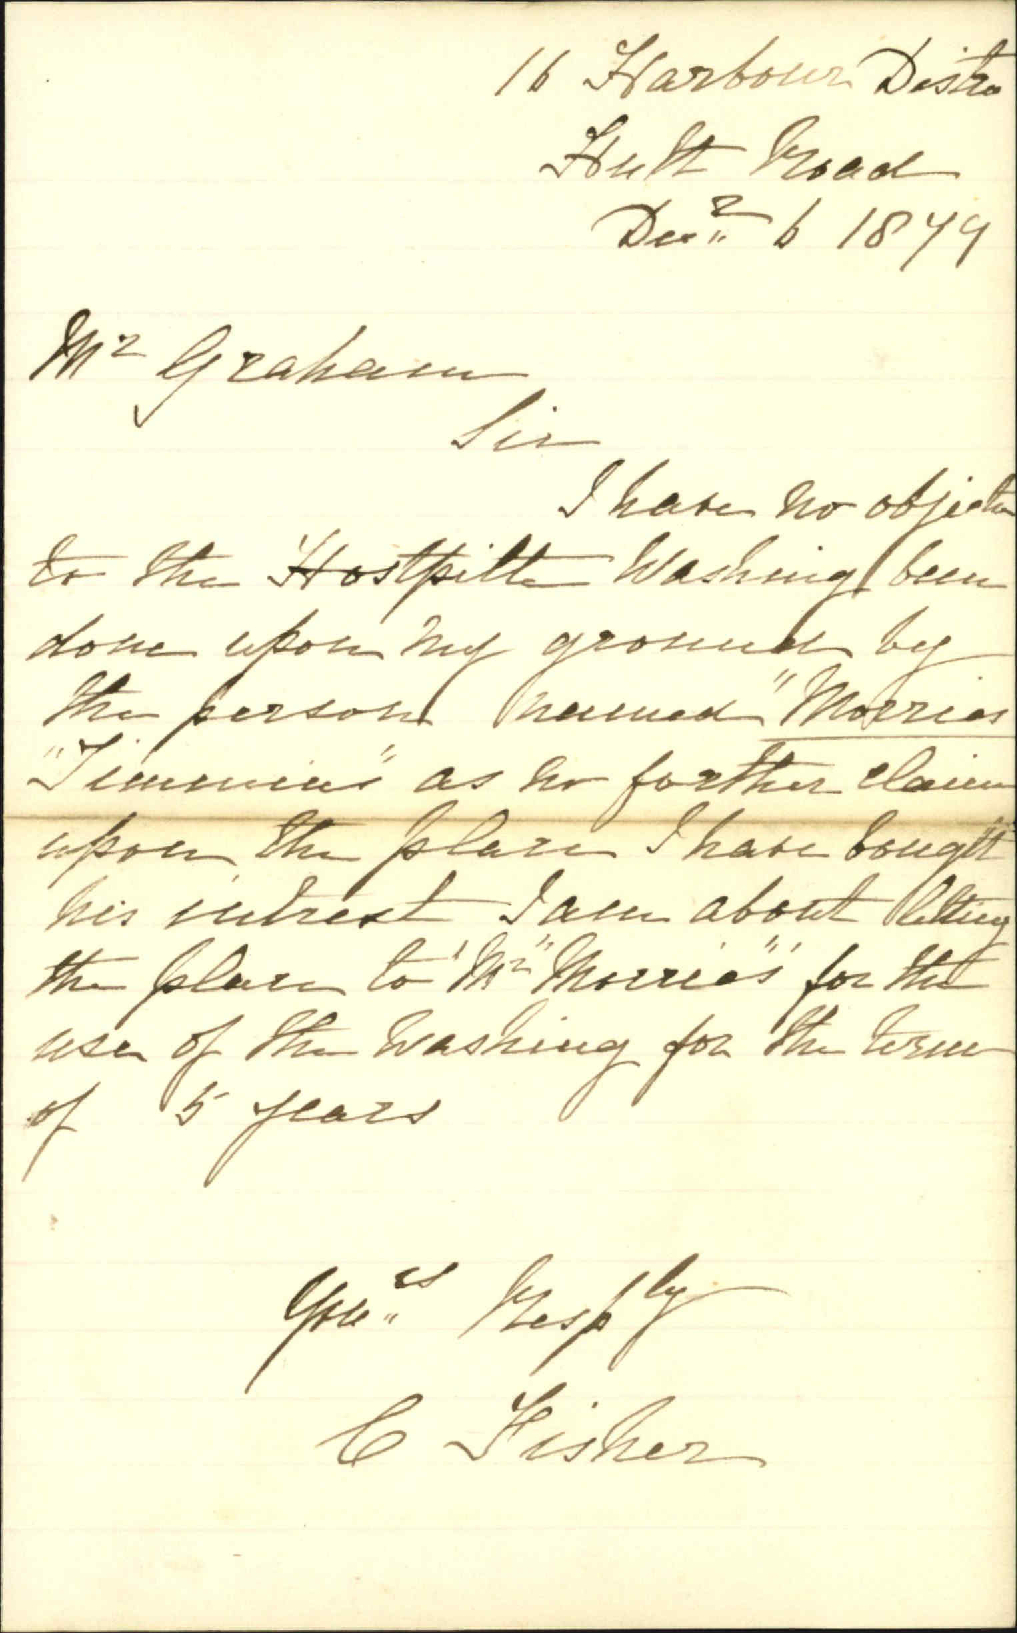 16 Harbour Distr
Hutt Road
Decr 6 1879
Mr Graham
Sir
I have no objectn
to the Hostpitle Washing been
done upon my ground by
the person named "Morries
"Timmins" as no forther claim
upon the place I have bought
his intrest I am about letting
the place to "Mr" Morries" for the
use of the Washing for the term
of 5 years
Yours Resply
C Fisher